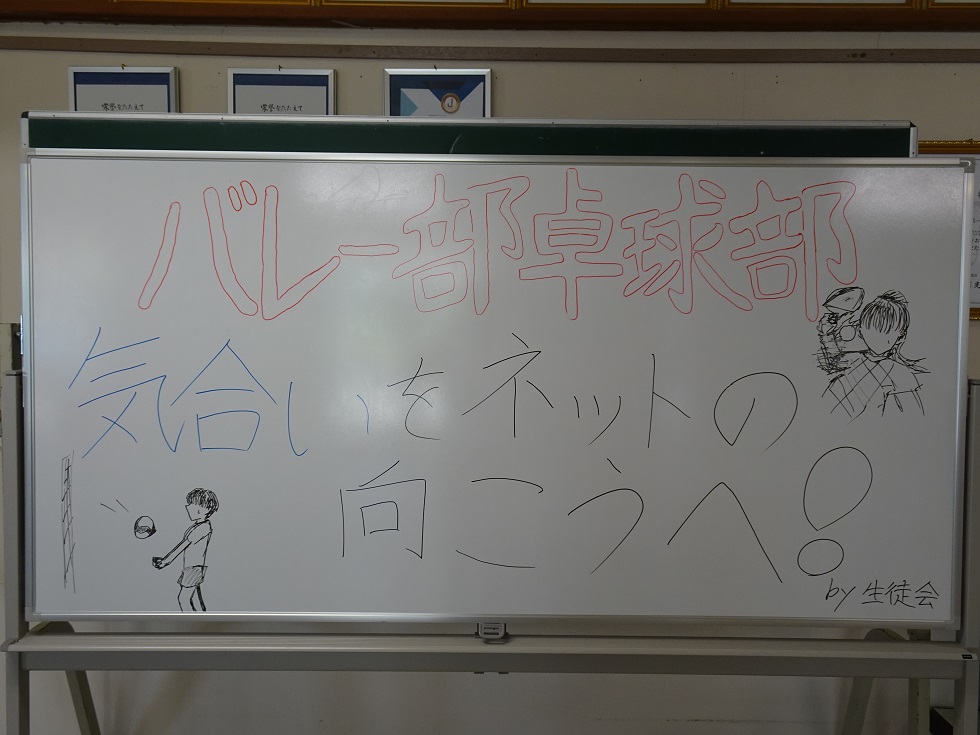 バレー部卓球部
気合いをネットの
向こうへ!
by 生徒会